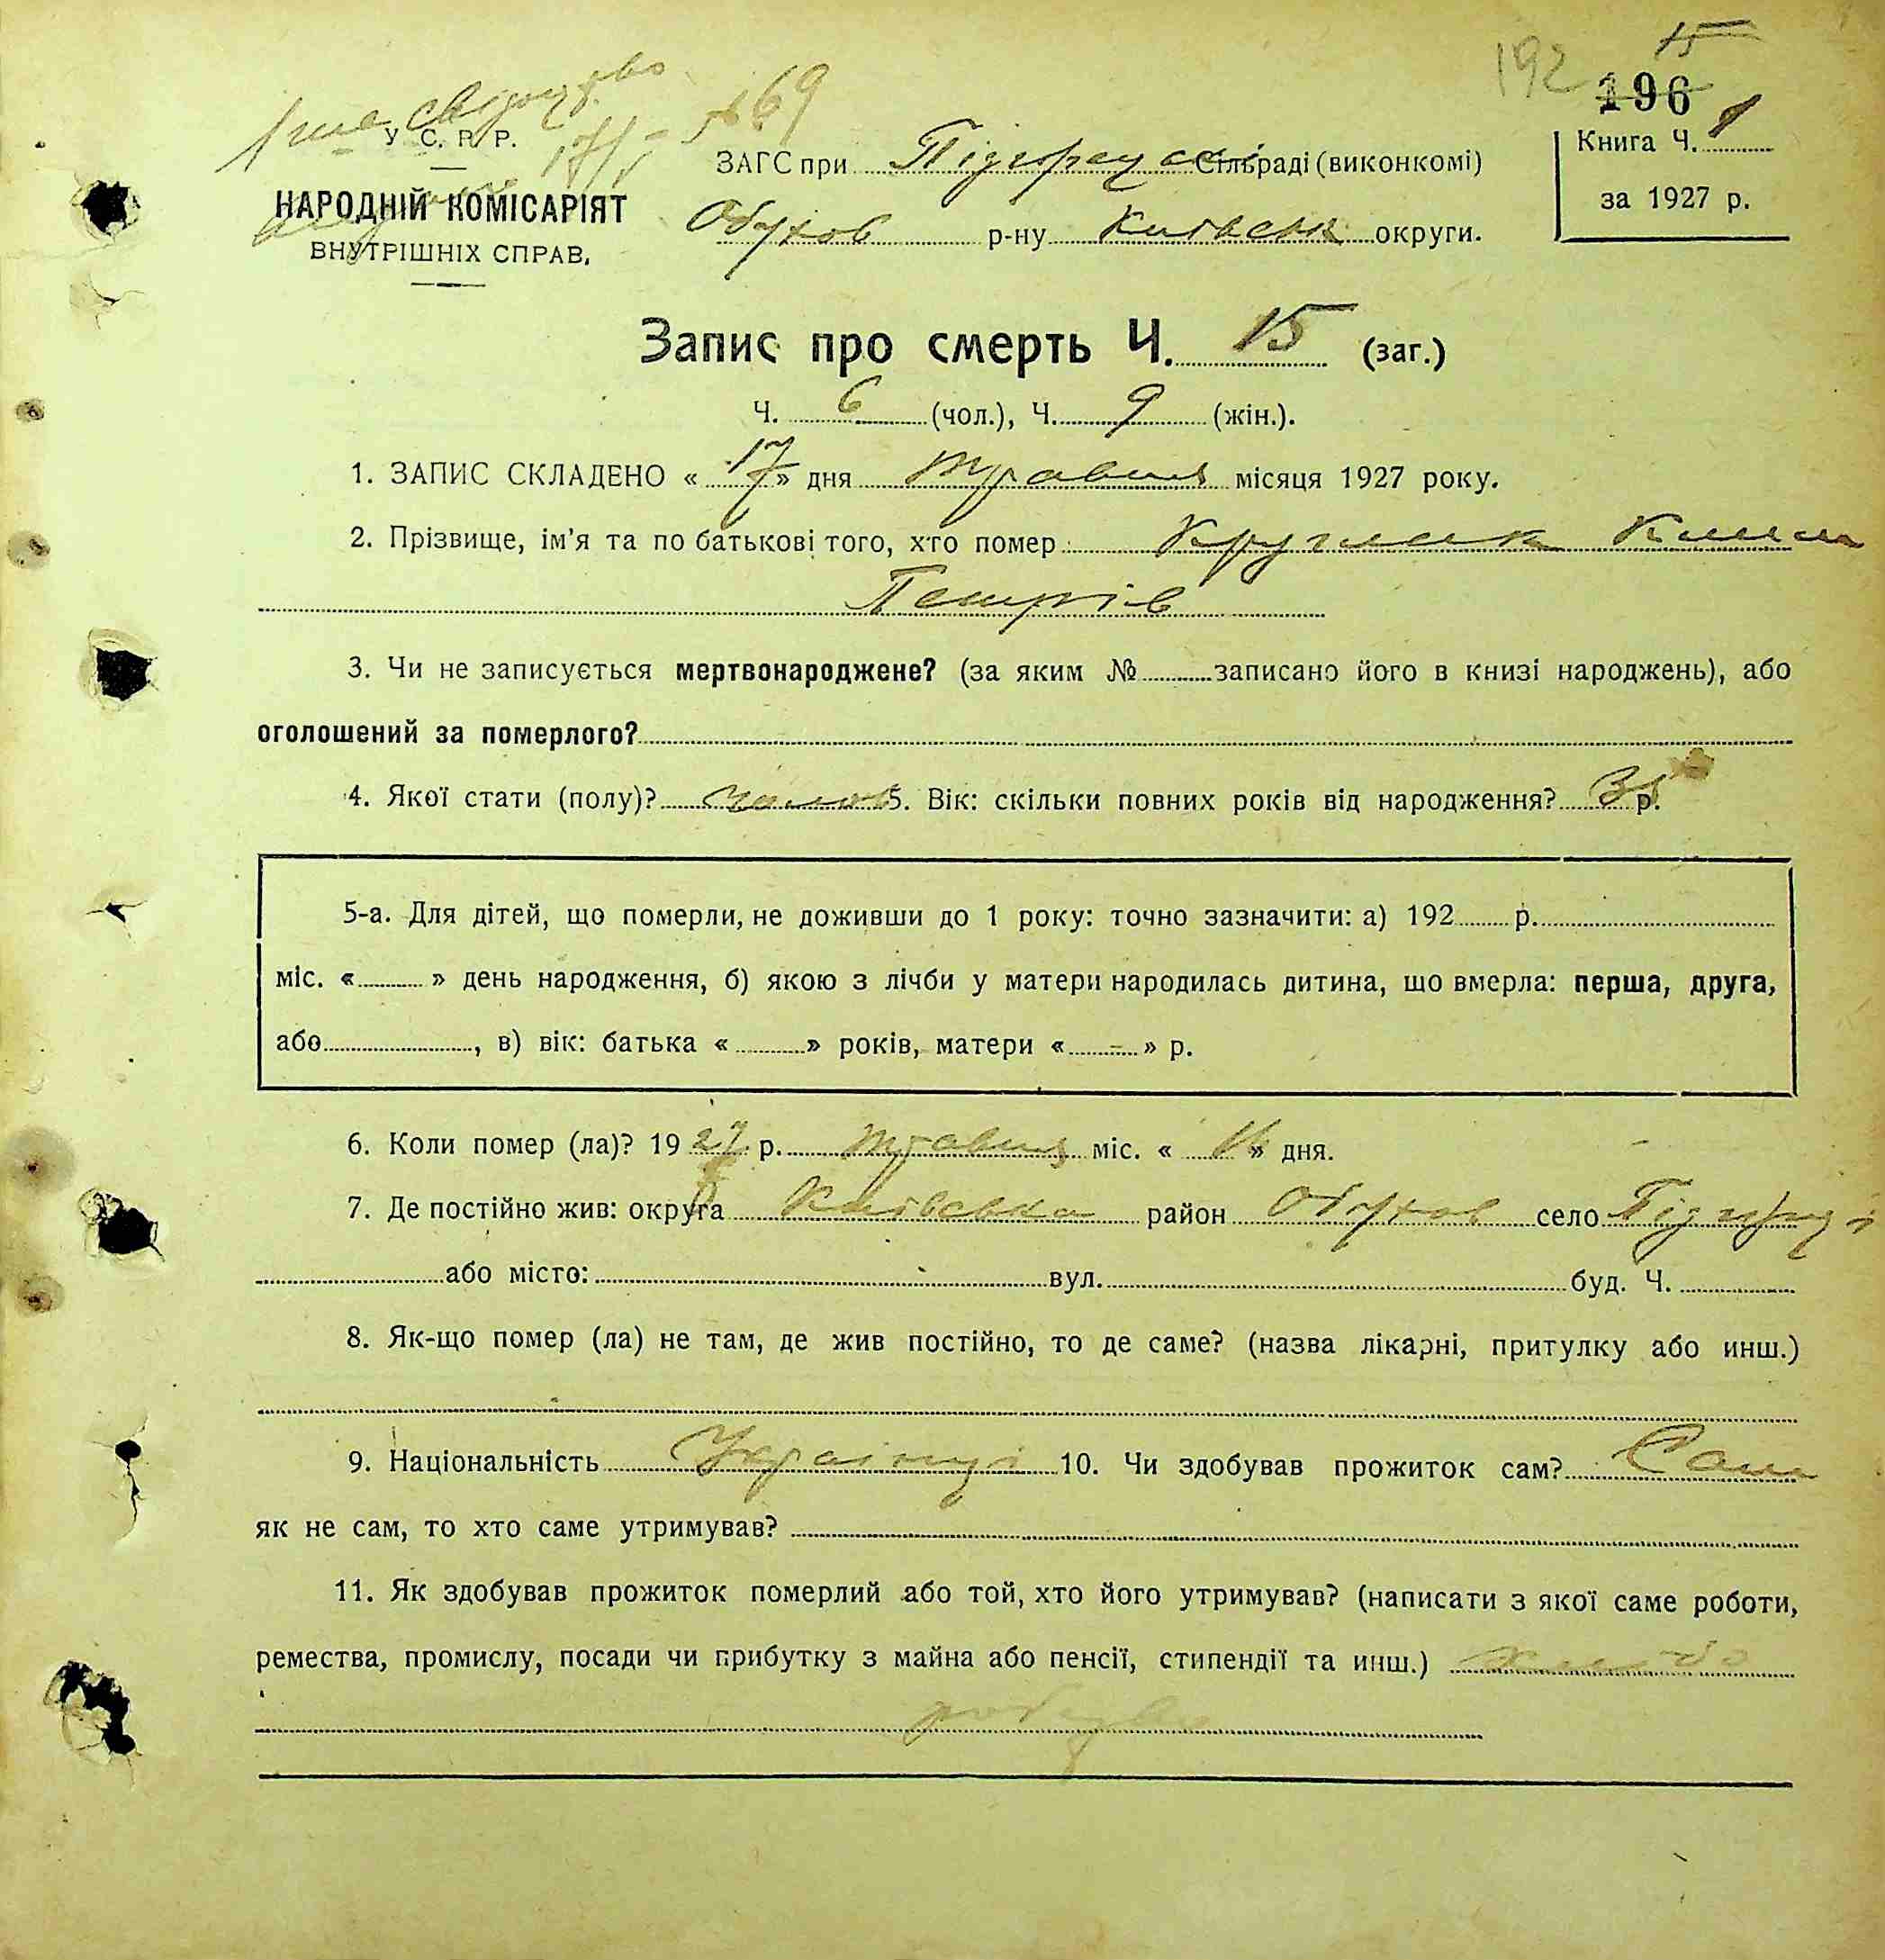 192 15
196
У. С. Р. Р.
НАРОДНІЙ КОМІСАРІЯТ
ВНУТРІШНІХ СПРАВ.
№ 69
ЗАГС при Підгорецьк Сільраді (виконкомі)
Обухов р-ну Київськ округи.
Книга Ч. 1
за 1927 р.
Запис про смерть Ч. 15 (заг.)
Ч. 6 (чол.), Ч. 9 (жін.).
1. ЗАПИС СКЛАДЕНО « 17 » дня травня місяця 1927 року.
2. Прізвище, ім'я та по батькові того, хто помер Кругляк Клим
Петрів
3. Чи не записується мертвонароджене? (за яким № записано його в книзі народжень), або
оголошений за померлого?
4. Якої стати (полу)? чолов 5. Вік: скільки повних років від народження? р.
5-а. Для дітей, що померли, не доживши до 1 року: точно зазначити: а) 192 р.
міс. « » день народження, б) якою з лічби у матери народилась дитина, що вмерла: перша, друга,
або , в) вік: батька « » років, матери « - » р.
6. Коли помер (ла)? 1927 р. травня міс. « 16 » дня.
7. Де постійно жив: округа Київська район Обухов село Підгірці
або місто: вул. буд. Ч.
8. Як-що помер (ла) не там, де жив постійно, то де саме? (назва лікарні, притулку або инш.)
9. Національність Українці 10. Чи здобував прожиток сам? Сам
як не сам, то хто саме утримував?
11. Як здобував прожиток померлий або той, хто його утримував? (написати з якої саме роботи,
ремества, промислу, посади чи прибутку з майна або пенсії, стипендії та инш.) хлібо